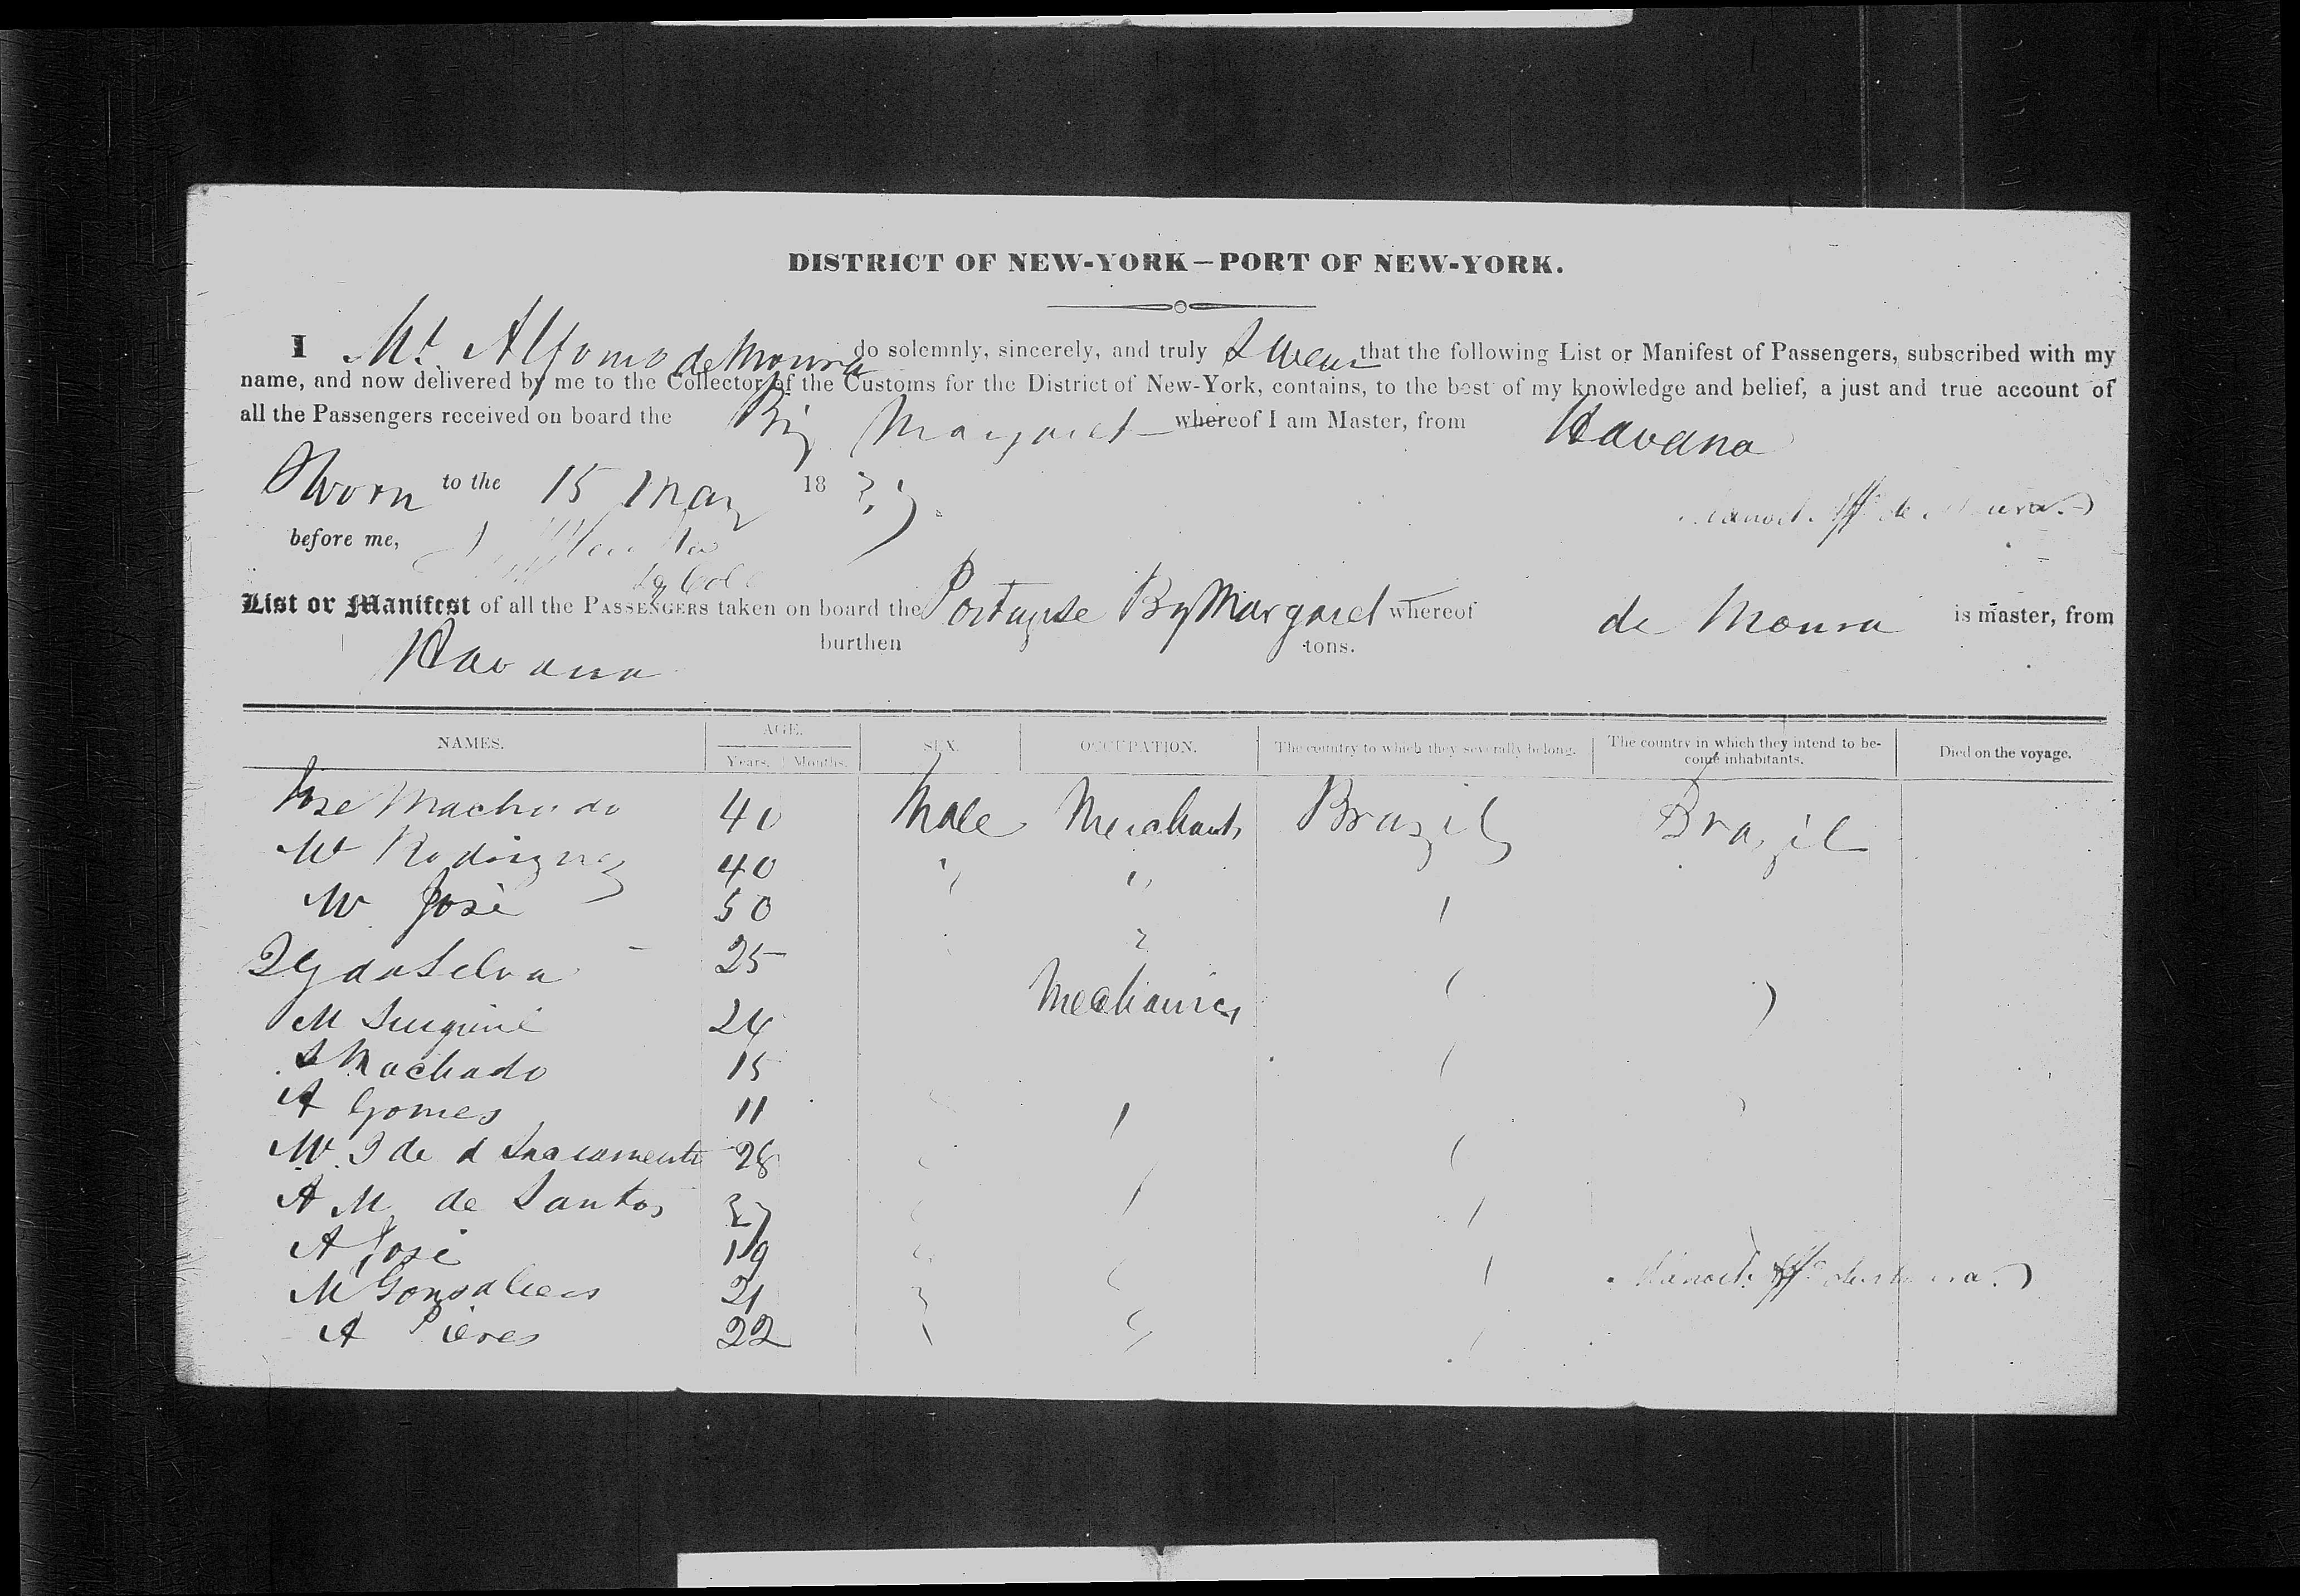 DISTRICT OF NEW-YORK—PORT OF NEW-YORK.
I Ml. Alfonso de Moura do solemnly, sincerely, and truly Swear that the following List or Manifest of Passengers, subscribed with my
name, and now delivered by me to the Collector of the Customs for the District of New-York, contains, to the best of my knowledge and belief, a just and true account of
all the Passengers received on board the Brig Margaret whereof I am Master, from Havana
Sworn to the 15 May 18
before me,
List or Manifest of all the PASSENGERS taken on board the Portugse Brg Margaret whereof de Moura is master, from
Havana burthen tons.
NAMES. AGE. Years. Months. SEX. OCCUPATION. The country to which they severally belong. The country in which they intend to be-come inhabitants. Died on the voyage.
Jose Machado 40 Male Merchants Brazil Brazil
M Rodriguez 40 " "
M José 50
da Selva 25
M 24 Mechanics
S Machado 15
A Gomes 11
M. J de d Sacramento 28
A M de Santos 37
A José 19
M Gonsalves 21
A Pieres 22